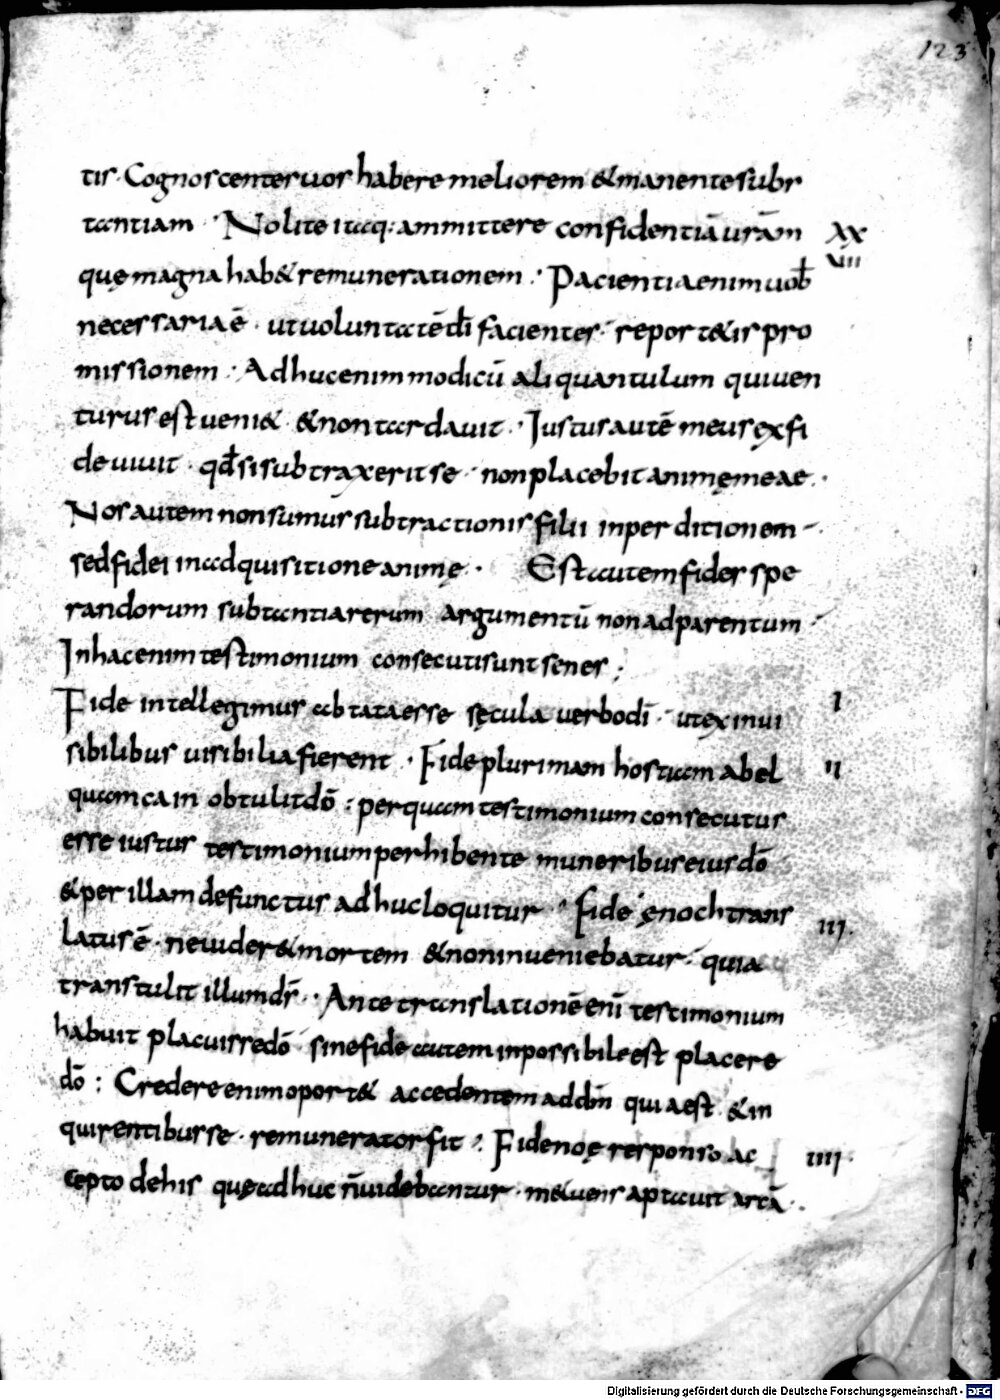 123
tis· Cognoscentes uos habere meliorem & manente subs
tantiam · Nolite itaq: ammittere confidentiā urām XX
VIII
quę magna hab& remunerationem · Pacientia enim uob̄
necessaria ē · ut uoluntatē dī facientes · report&is pro
missionem · Adhuc enim modicū aliquantulum qui uen
turus est ueni& & non tardauit · Iustus autē meus ex fi
de uiuit · qd̄ si subtraxerit se · non placebit animę meae ·
Nos autem non sumus subtractionis filii in perditionem
sed fidei in adquisitione animę · Est autem fides spe
randorum subtantia rerum argumentū non adparentum
In hac enim testimonium consecuti sunt senes ;
Fide intellegimus abtata esse sęcula uerbo dī · ut ex inui I
sibilibus uisibilia fierent · Fide plurimam hostiam abel II
quam cain obtulit dō : per quam testimonium consecutus
esse iustus testimonium perhibente muneribus eius dō
& per illam defunctus adhuc loquitur · Fide ęnoch trans
III·
latus ē · ne uider& mortem & non inueniebatur · quia
transtulit illum dс̄ · Ante translationē enī testimonium
habuit placuisse dō sine fide autem inpossibile est placere
dō : Credere enim oport& accedentem ad dm̄ quia est & in
quirentibus se · remunerator fit : Fide noę responso ac IIII·
cepto de his quę adhuc n̄ uidebantur · m&uens aptauit arcā ·
Digitalisierung gefördert durch die Deutsche Forschungsgemeinschaft - DFG